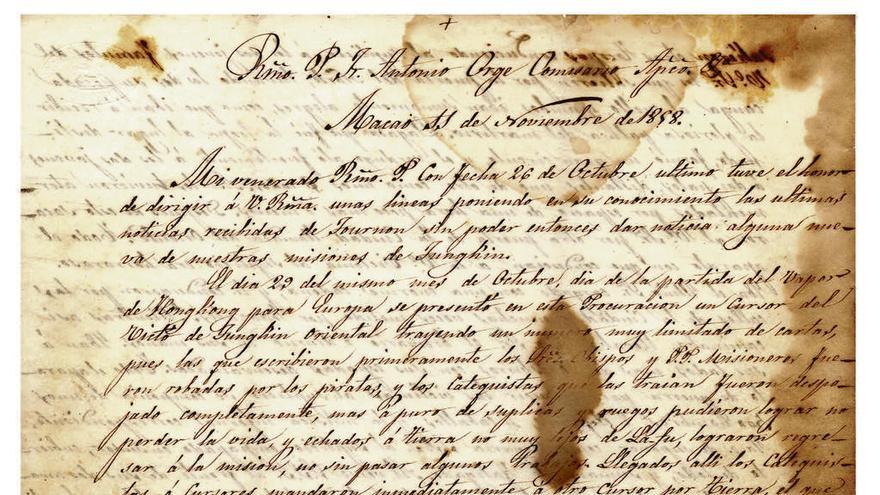 Rmo. P. Fr. Antonio Orge Comisario Apco.
Macao 11 de Noviembre de 1858.
Mi venerado Rmo. P. Con fecha 26 de Octubre ultimo tuve el honor
de dirigir á V. Rma. unas lineas poniendo en su conocimiento las ultimas
noticias recibidas de Tournon sin poder entonces dar noticia alguna nue-
va de nuestras misiones de Tunghin.
El dia 29 del mismo mes de Octubre, dia de la partida del Vapor
de Hongkong para Europa se presentó en esta Procuracion un cursor del
Victo de Tunghin Oriental trayendo un numero muy limitado de cartas,
pues las que escribieron primeramente los Obispos y PP. Misioneros fue-
ron robadas por los piratas, y los Catequistas que las traian fueron despo-
jado completamente, mas á puro de suplicas y ruegos pudieron lograr no
perder la vida, y echados á tierra no muy lejos de Lafu, lograron regre-
sar á la mision, no sin pasar algunos trabajos. Llegados alli los Catequis-
tas ó Cursores mandaron inmediatamente á otro Cursor por tierra, el que